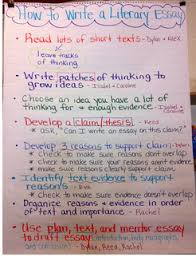 How to Write a Literary Essay
• Read lots of short texts - Dylan + Alex
leave tracks
of thinking
• Write patches of thinking to
grow ideas - Isabel + Caroline
• Choose an idea you have a lot of
thinking for + enough evidence - Isabel +
• Develop a claim/thesis - Reed
* ask, "Can I write an essay on this claim?"
• Develop 3 reasons to support claim
* check to make sure they don't overlap
* check to make sure your reasons aren't evidence
* check to make sure claim + reasons match
• Identify text evidence to support
reasons
* check to make sure evidence doesn't overlap
• Organize reasons + evidence in order
of text and importance - Rachel
• Use plan, text, and mentor essay
to draft essay (introduction, body paragraphs,
and conclusion)
- Dylan, Reed, Rachel